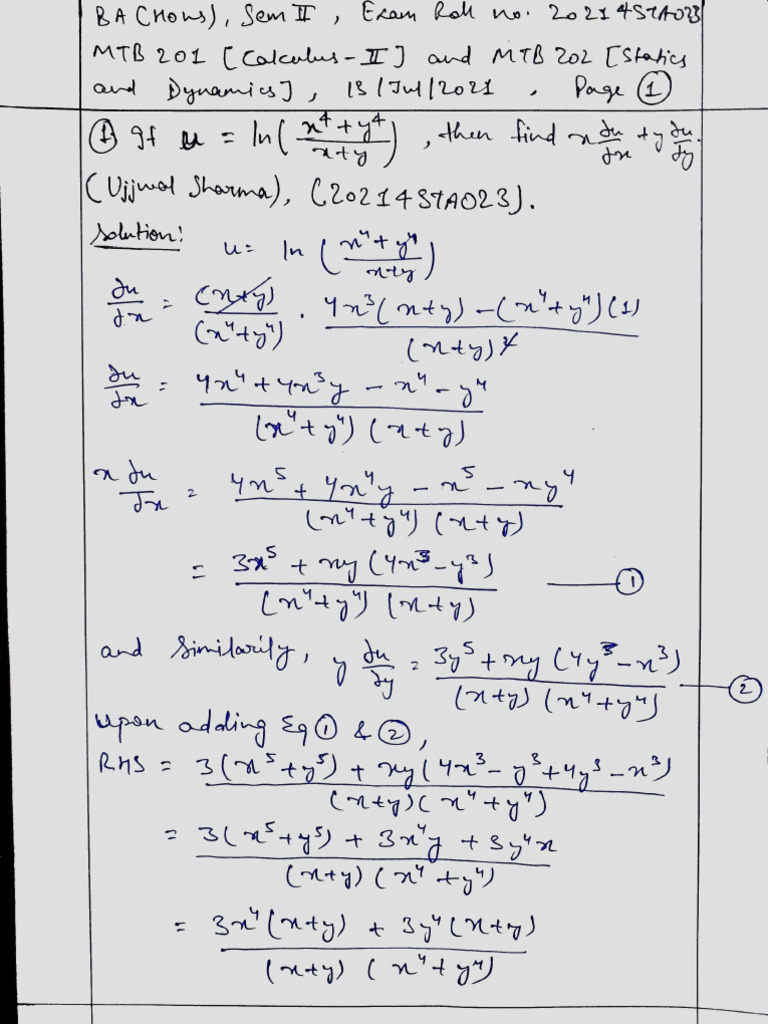 BA (Hons), Sem II, Exam Roll no. 20214STA023
MTB 201 [Calculus-II] and MTB 202 [Statics
and Dynamics], 13/Jul/2021, Page ①
① If u = ln((x⁴+y⁴)/(x+y)), then find x ∂u/∂x + y ∂u/∂y.
(Ujjwal Sharma), (20214STA023).
Solution: u = ln((x⁴+y⁴)/(x+y))
∂u/∂x = (x+y)/(x⁴+y⁴) · (4x³(x+y) - (x⁴+y⁴)(1))/(x+y)²
∂u/∂x = (4x⁴+4x³y - x⁴ - y⁴)/((x⁴+y⁴)(x+y))
x ∂u/∂x = (4x⁵ + 4x⁴y - x⁵ - xy⁴)/((x⁴+y⁴)(x+y))
= (3x⁵ + xy(4x³-y³))/((x⁴+y⁴)(x+y)) —— ①
and Similarily, y ∂u/∂y = (3y⁵ + xy(4y³-x³))/((x+y)(x⁴+y⁴)) —— ②
Upon adding Eq ① & ②,
RHS = (3(x⁵+y⁵) + xy(4x³-y³+4y³-x³))/((x+y)(x⁴+y⁴))
= (3(x⁵+y⁵) + 3x⁴y + 3y⁴x)/((x+y)(x⁴+y⁴))
= (3x⁴(x+y) + 3y⁴(x+y))/((x+y)(x⁴+y⁴))